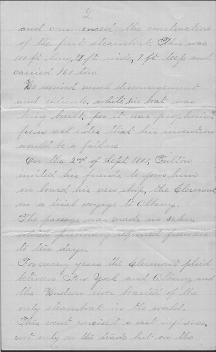 2
and commenced the construction
of the first steamboat. This was
100 ft long, 12 ft wide, 7 ft deep and
carried 160 tons.
He received much discouragement
and ridicule, while his boat was
being built, for it was prophesied
from all sides that his invention
would be a failure.
On the 2nd of Sept 180, Fulton
invited his friends to join him
on board his new ship, the Clermont
on a trial voyage to Albany.
The passage was made in
to ten days.
For many years the Clermont plied
between New York and Albany and
the Hudson river boasted of the
only steamboat in the world.
This event needed a vast influence,
not only on the trade but on the